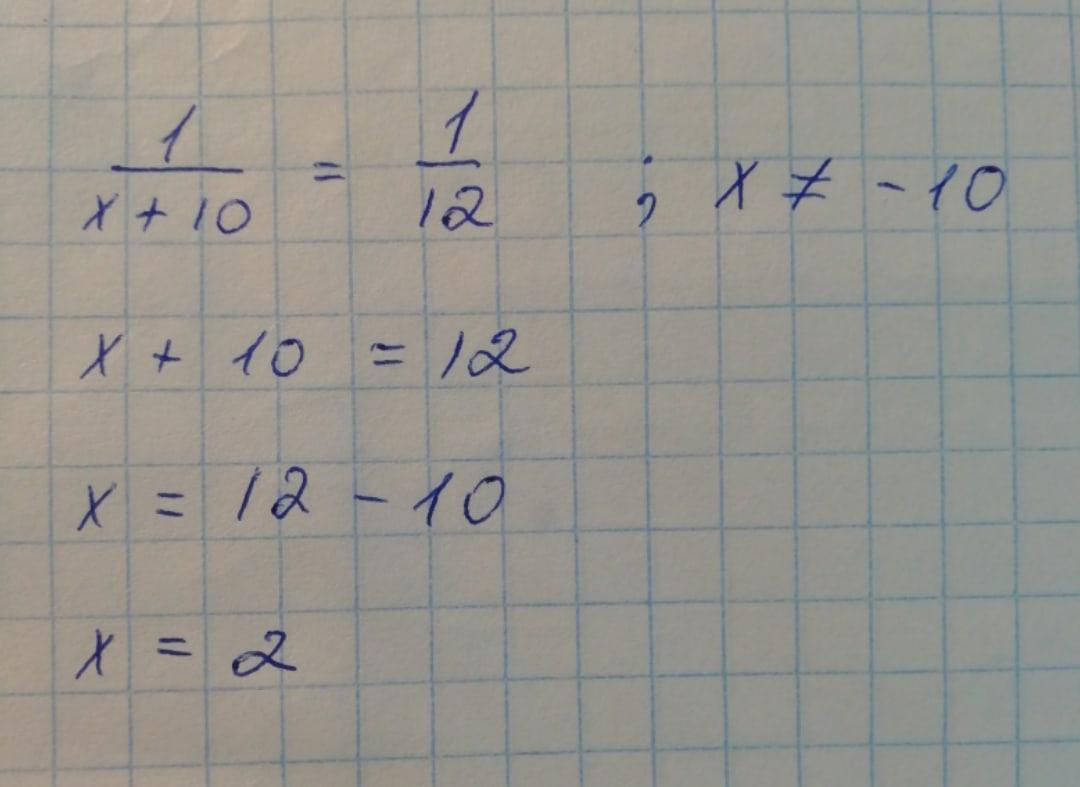 1/(x + 10) = 1/12 ; x ≠ -10
x + 10 = 12
x = 12 - 10
x = 2